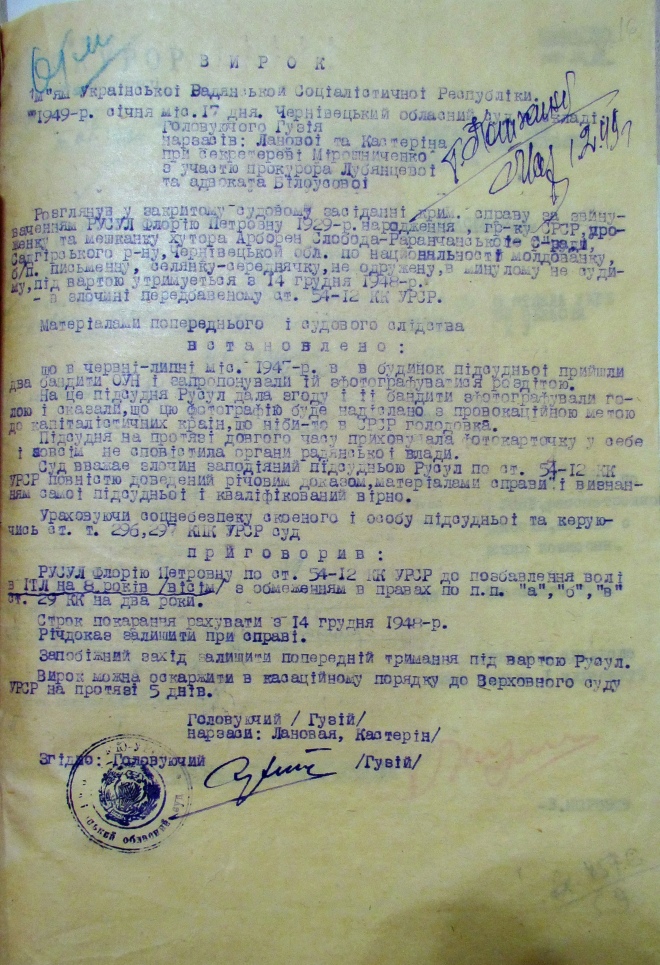 16
В И Р О К
Ім"ям Української Вадянської Соціалістичної Республіки.
1949-р. січня міс. 17 дня. Чернівецький обласний суд
Головуючого Гузія
нарзасів: Ланової та Кастеріна
при секретереві Мірошниченко
з участю прокурора Лубянцевої
та адвоката Білоусової
Розглянув у закритому судовому засіданні крим. справу за звину-
ваченням РУСУЛ Флорію Петровну 1929-р. народження , гр-ку СРСР, уро-
женку та мешканку хутора Арборен Слобода-Раранчанської С-ради,
Садгірського р-ну, Чернівецької обл. по національності молдованку,
б/п. письменну, селянку-середнячку, не одружену, в минулому не суди-
му, під вартою утримується з 14 грудня 1948-р.
- в злочині передбаченому ст. 54-12 КК УРСР.
Матеріалами попереднього і судового слідства
в с т а н о в л е н о :
що в червні-липні міс. 194 -р. в в будинок підсудньої прийшли
два бандити ОУН і запропонували їй зфотографуватися роздітою.
На це підсудня Русул дала згоду і її бандити зфотографували го-
лою і сказали, що цю фотографію буде надіслано з провокаційною метою
до капіталістичних країн, що ніби-то в СРСР голодовка.
Підсудня на протязі довгого часу приховувала фотокарточку у себе
і зовсім не сповістила органи радянської влади.
Суд вважає злочин заподіяний підсудньою Русул по ст. 54-12 КК
УРСР повністю доведений річовим доказом, матеріалами справи і визнан-
ням самої підсудньої і кваліфікований вірно.
Ураховуючи соцнебезпеку скоеного і особу підсудньої та керую-
чись ст. т. 296,297 КПК УРСР суд
п р и г о в о р и в :
РУСУЛ Флорію Петровну по ст. 54-12 КК УРСР до позбавлення волі
в ІТЛ на 8 років /вісім/ з обмеженням в правах по п.п. "а","б","в"
ст. 29 КК на два роки.
Строк покарання рахувати з 14 грудня 1948-р.
Річдоказ залишити при справі.
Запобіжний захід залишити попередній тримання під вартою Русул.
Вирок можна оскаржити в касаційному порядку до Верховного суду
УРСР на протязі 5 днів.
Головуючий / Гузій/
нарзаси: Лановая, Кастерін/
Згідно: Головуючий /Гузій/
обласний суд